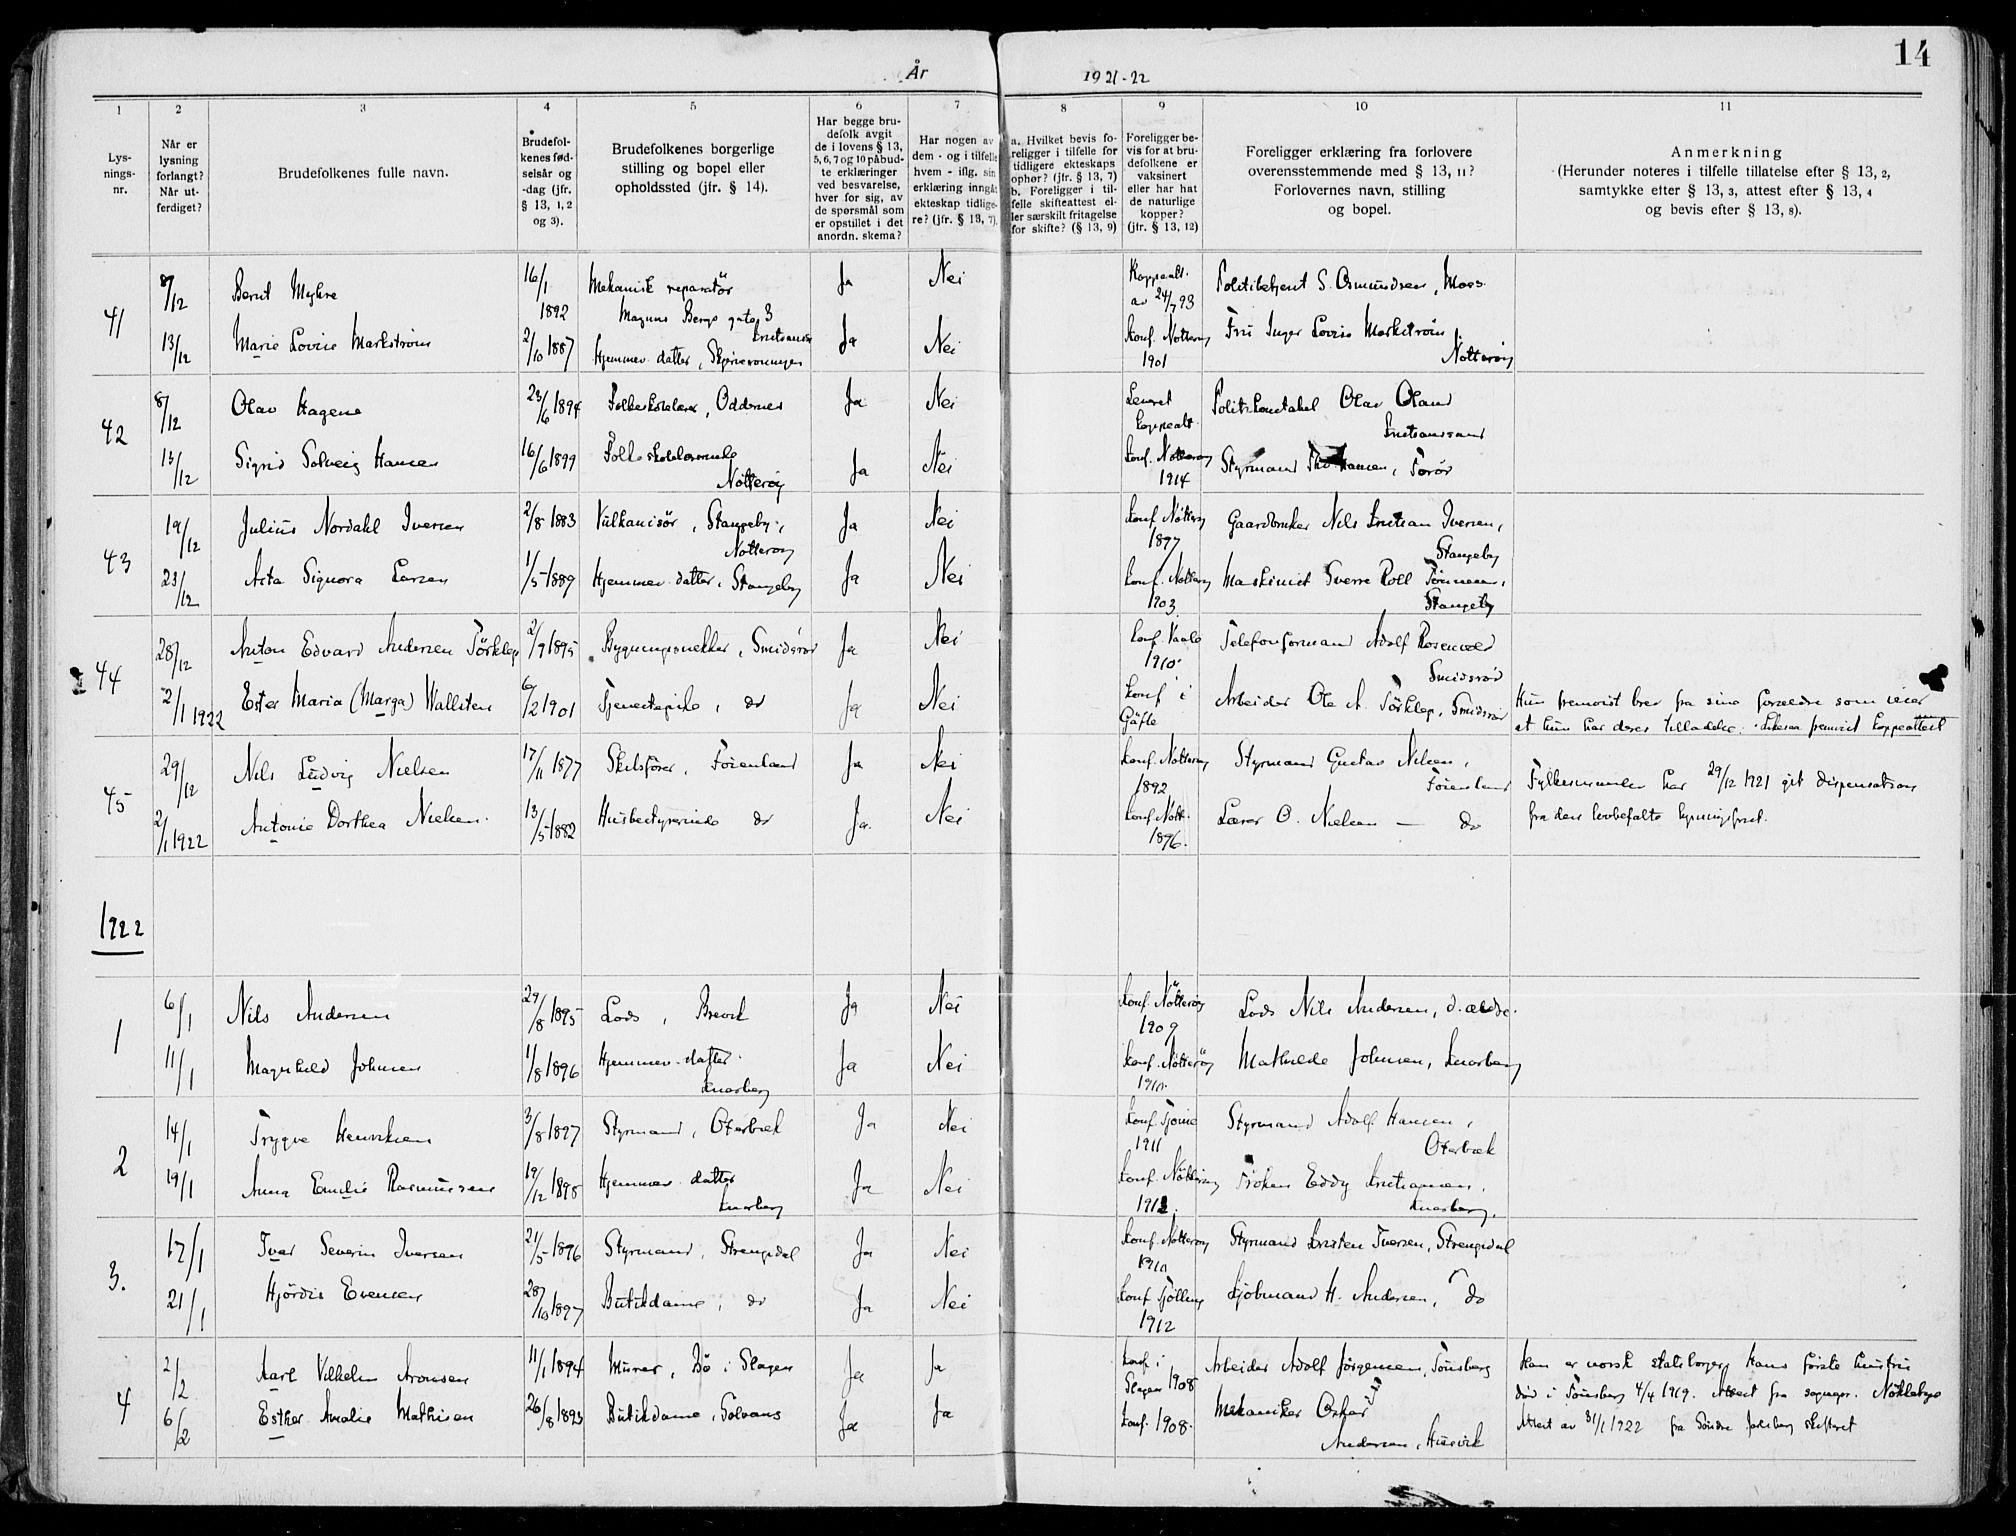 14
År 1921-22
1 2 3 4 5 6 7 8 9 10 11
Lys-
nings-
nr.
Når er
lysning
forlangt?
Når ut-
ferdiget?
Brudefolkenes fulle navn.
Brudefol-
kenes fød-
selsår og
-dag (jfr.
§ 13, 1, 2
og 3).
Brudefolkenes borgerlige
stilling og bopel eller
opholdssted (jfr. § 14).
Har begge bru-
defolk avgit
de i lovens § 13,
5, 6, 7 og 10 påbud-
te erklæringer
ved besvarelse,
hver for sig, av
de spørsmål som
er opstillet i det
anordn. skema?
Har nogen av
dem - og i tilfelle
hvem - iflg. sin
erklæring inngåt
ekteskap tidlige-
re? (jfr. § 13, 7).
a. Hvilket bevis fo-
religger i tilfelle for
tidligere ekteskaps
ophør? (jfr. § 13, 7)
b. Foreligger i til-
felle skifteattest el-
ler særskilt fritagelse
for skifte? (§ 13, 9)
Foreligger be-
vis for at bru-
defolkene er
vaksinert
eller har hat
de naturlige
kopper?
(jfr. § 13, 12)
Foreligger erklæring fra forlovere
overensstemmende med § 13, 11?
Forlovernes navn, stilling
og bopel.
Anmerkning
(Herunder noteres i tilfelle tillatelse efter § 13, 2,
samtykke efter § 13, 3, attest efter § 13, 4
og bevis efter § 13, 8).
41
8/12 Bernt Myhre 16/1 1892 Mekanisk reparatör Ja Nei Koppeatt. av 24/7 93 Politibetjent S. Osmundsen, Moss.
Magnus Bergs gate 3
Kristiania
13/12 Marie Lovise Markström 2/10 1887 Hjemmev. datter, Ja Nei Konf. Nötterøy 1901 Fru Inger Lovise Markström
Nötterøy
42
8/12 Olav Hagene 23/6 1894 Folkeskolelærer, Oddernes Ja Nei Leveret koppeatt. Politikonstabel Olav Oland
Kristiansand
13/12 Sigrid Solveig Hansen 16/6 1899 Folkeskolelærerinde Ja Nei Konf. Nötterøy 1914 Styrmand Hansen, Torör
Nötterøy
43
19/12 Julius Nordahl Iversen 2/8 1883 Vulkanisör, Stangeby, Ja Nei Konf. Nötterøy 1897 Gaardbruker Nils Kristian Iversen,
Nötterøy Stangeby
23/12 Asta Signora Larsen 1/5 1889 Hjemmev. datter, Stangeby Ja Nei Konf. Nötterøy 1903 Maskinist Sverre Roll Tönnesen,
Stangeby
44
28/12 Anton Edvard Andersen Törklep 2/9 1895 Bygningssnekker, Smidsrød Ja Nei Konf. Vaale 1910. Telefonformand Adolf Rosenvold
Smidsrød
2/1 1922 Ester Maria (Marga) Wallsten 6/2 1901 Tjenestepike, do Ja Nei Konf i Gäfle Arbeider Ole A. Törklep, Smidsrød
Hun fremvist brev fra sine forældre som viser
at hun har deres tilladelse. Likesaa fremvist koppeattest
45
29/12 Nils Ludvig Nielsen 17/11 1877 Skibsfører, Föienland Ja Nei Konf. Nötterøy 1892 Styrmand Gustav Nilsen,
Föienland
Fylkesmanden har 29/12 1921 git dispensation
2/1 1922 Antonie Dorthea Nielsen. 13/5 1882 Husbestyrerinde do Ja. Nei Konf. Nött. 1896. Lærer O. Nielsen — do
fra den lovbefalte lysningsfrist.
1922
1
6/1 Nils Andersen 29/8 1895 Lods, Brevik Ja Nei Konf. Nötterøy 1909 Lods Nils Andersen, d. ældre.
11/1 Magnhild Johnsen 11/8 1896 Hjemmev. datter. Ja Nei Konf. Nötterøy 1910. Mathilde Johnsen, Knarberg
Knarberg
2
14/1 Trygve Henriksen 3/8 1897 Styrmand, Oterbæk Ja Nei Konf. Tjøme 1911 Styrmand Adolf Hansen,
Oterbæk
19/1 Anna Emilie Rasmussen 19/12 1898 Hjemmev. datter Ja Nei Konf. Nötterøy Fröken Eddy Kristiansen,
Knarberg Knarberg.
3.
17/1 Ivar Severin Iversen 21/5 1896 Styrmand, Strengsdal Ja Nei Konf. Nötterøy 1910 Styrmand Kristen Iversen, Strengsdal
21/1 Hjördis Evensen 28/10 1897 Butikdame, do Ja Nei Konf Tjölling 1912 Kjöbmand H. Andersen, do
4
2/2 Karl Vilhelm Aronsen 11/1 1894 Murer, Bö i Slagen Ja Ja Konf. i Slagen 1908 Arbeider Adolf Jörgensen, Tönsberg
Han er norsk statsborger, Hans første hustru
död i Tönsberg 4/4 1919. Attest fra sogneprest Nökleby
6/2 Esther Amalie Mathisen 26/8 1893 Butikdame, Solvang Ja Ja Konf. 1908. Mekaniker Oskar
Andersen, Husvik
Attest av 31/1 1922 fra Söndre Jarlsberg skifteret